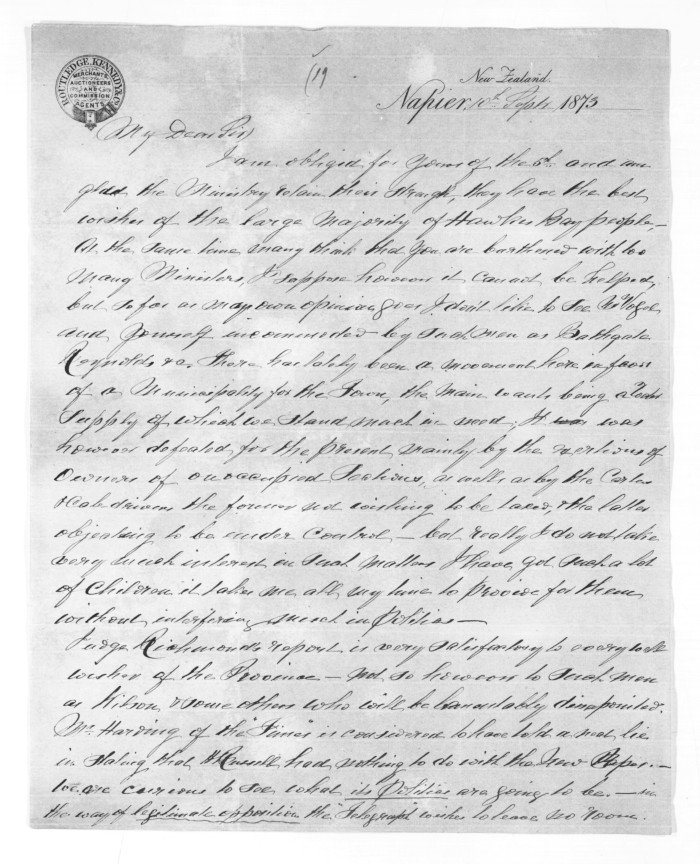 ROUTLEDGE, KENNEDY & Co
MERCHANTS,
AUCTIONEERS
AND
COMMISSION
AGENTS.
(19
New Zealand.
Napier, 10th Septr 1873
My Dear Sir
I am obliged for yours of the 5th and am
glad the Ministry retain their strength, they have the best
wishes of the large majority of Hawkes Bay people,—
At the same time many think that you are burthened with too
many Ministers, I suppose however it cannot be helped,
but so far as my own opinion goes I don't like to see Mr Vogel
and yourself incommoded by such men as Bathgate
Reynolds &a. There has lately been a movement here in favor
of a Municipality for the Town, the main wants being a Water
Supply of which we stand much in need, It was
however defeated for the present mainly by the exertions of
Owners of unoccupied Sections, as well as by the Carters
& Cab drivers the former not wishing to be taxed, & the latter
objecting to be under control,— but really I do not take
very much interest in such matters I have got such a lot
of Children it takes me all my time to provide for them
without interfering much in Politics—
Judge Richmond's report is very satisfactory to every well
wisher of the Province — not so however to such men
as Wilson, & some others who will be lamentably disappointed.
Mr Harding of the "Times" is considered to have told a lie
in stating that H Russell had nothing to do with the New Paper.—
We are curious to see what its Politics are going to be.— in
the way of legitimate opposition the Telegraph wishes to leave no room.